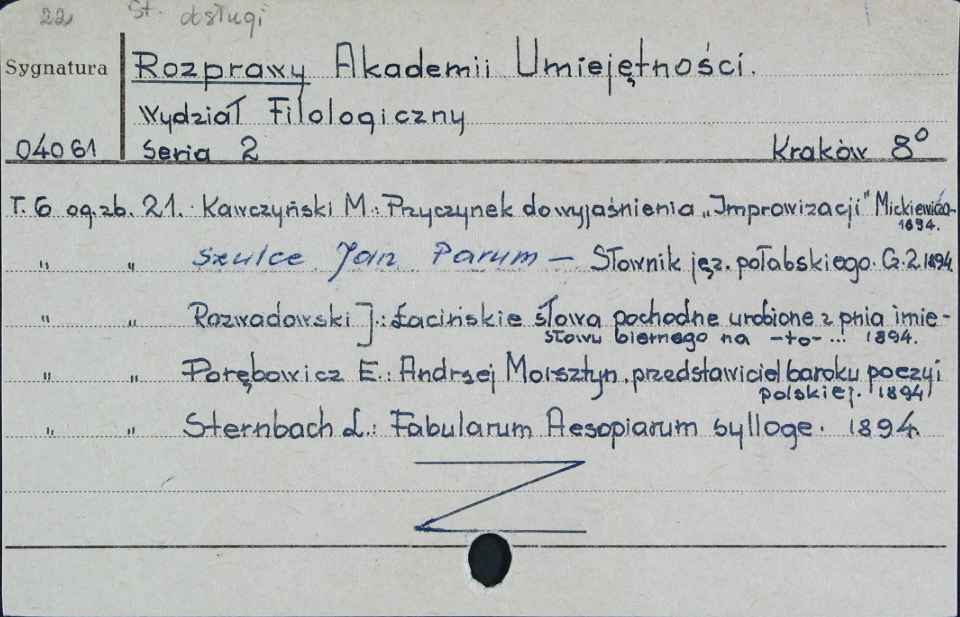 22, St. obsługi
Sygnatura Rozprawy Akademii Umiejętności.
Wydział Filologiczny
04061 Seria 2 Kraków 8°
T. 6 og.zb. 21. Kawczyński M.: Przyczynek do wyjaśnienia „Improwizacji" Mickiewicza
1894.
" " Szulce Jan Parum — Słownik jęz. połabskiego. Cz. 2. 1894
" " Rozwadowski J.: Łacińskie słowa pochodne urobione z pnia imie-
słowu biernego na -to- ... 1894.
" " Porębowicz E.: Andrzej Morsztyn, przedstawiciel baroku poezyi
polskiej. 1894
" " Sternbach L.: Fabularum Aesopiarum sylloge. 1894.